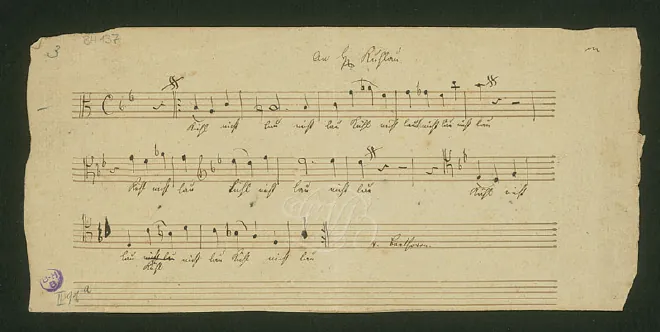 3
An H. Kuhlau
Kühl nicht lau nicht lau Kühl nicht lau nicht lau nicht lau
Kühl nicht lau Kühl nicht lau nicht lau Kühl nicht
v. Beethoven.
lau nicht lau nicht lau Kühl nicht lau
Kühl